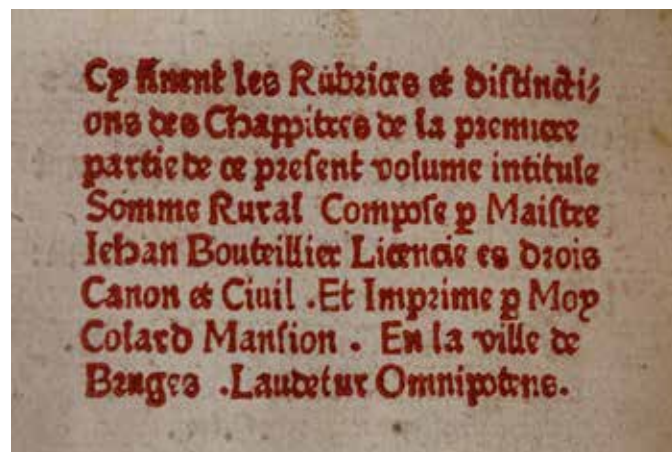 Cy finent les Rubrices et distincti⸗
ons des Chappitres de la premiere
partie de ce present volume intitule
Somme Rural Compose ꝑ Maistre
Iehan Bouteillier Licencie es drois
Canon et Ciuil .Et Imprime ꝑ Moy
Colard Mansion . En la ville de
Bruges .Laudetur Omnipotens.